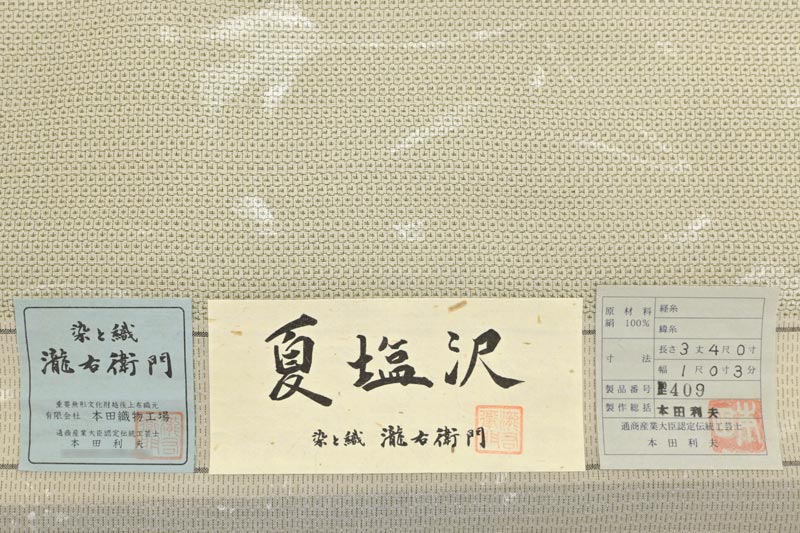 染と織
瀧右衛門
重要無形文化財越後上布織元
有限会社 本田織物工場
通商産業大臣認定伝統工芸士
本田利夫
夏塩沢
染と織 瀧右衛門
原材料 絹100% 経糸
緯糸
寸法 長さ3丈4尺0寸
幅1尺0寸3分
製品番号 409
製作総括 本田利夫
通商産業大臣認定伝統工芸士
本田利夫